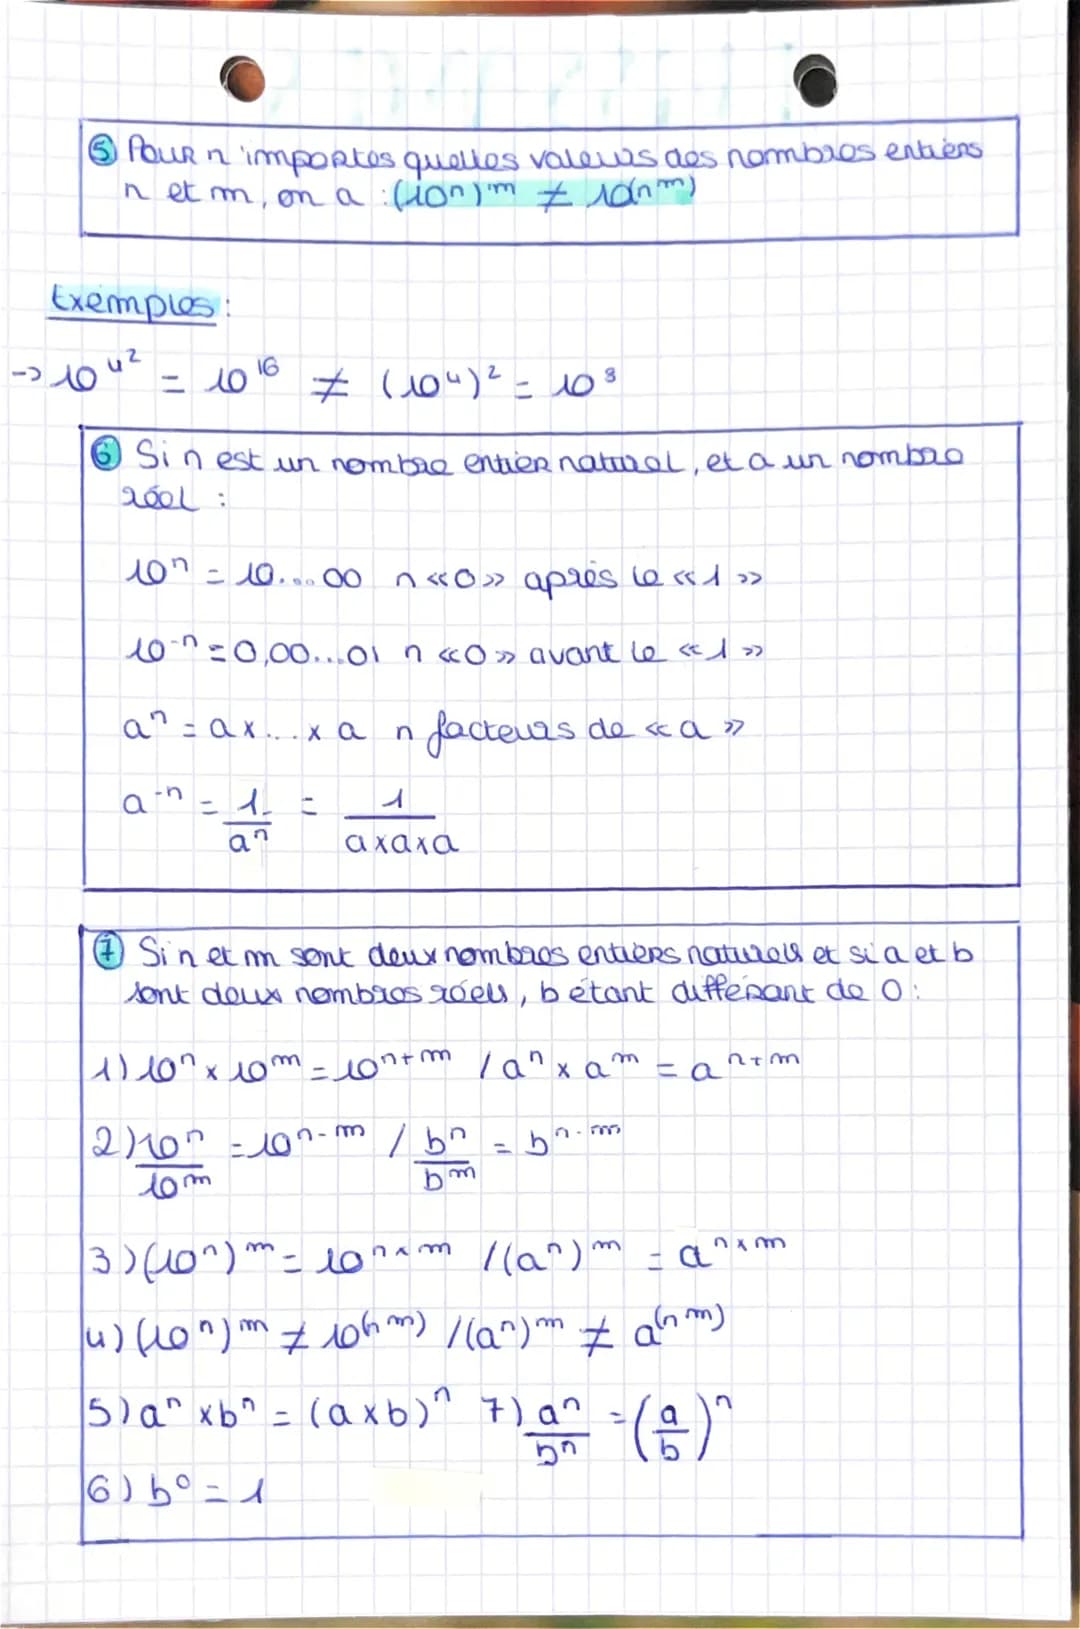 ⑤ Pour n'importes quelles valeurs des nombres entiers
n et m, on a : (10ⁿ)ᵐ ≠ 10^(n^m)
Exemples :
-> 10^4^2 = 10^16 ≠ (10^4)^2 = 10^8
⑥ Si n est un nombre entier naturel, et a un nombre
réel :
10^n = 10....00 n «0» après le «1»
10^-n = 0,00...01 n «0» avant le «1»
a^n = a x...x a n facteurs de «a»
a^-n = 1/a^n = 1/(axaxa)
⑦ Si n et m sont deux nombres entiers naturels et si a et b
sont deux nombres réels, b étant différant de 0 :
1) 10^n x 10^m = 10^(n+m) / a^n x a^m = a^(n+m)
2) 10^n/10^m = 10^(n-m) / b^n/b^m = b^(n-m)
3) (10^n)^m = 10^(n x m) / (a^n)^m = a^(n x m)
4) (10^n)^m ≠ 10^(n^m) / (a^n)^m ≠ a^(n^m)
5) a^n x b^n = (a x b)^n 7) a^n/b^n = (a/b)^n
6) b^0 = 1